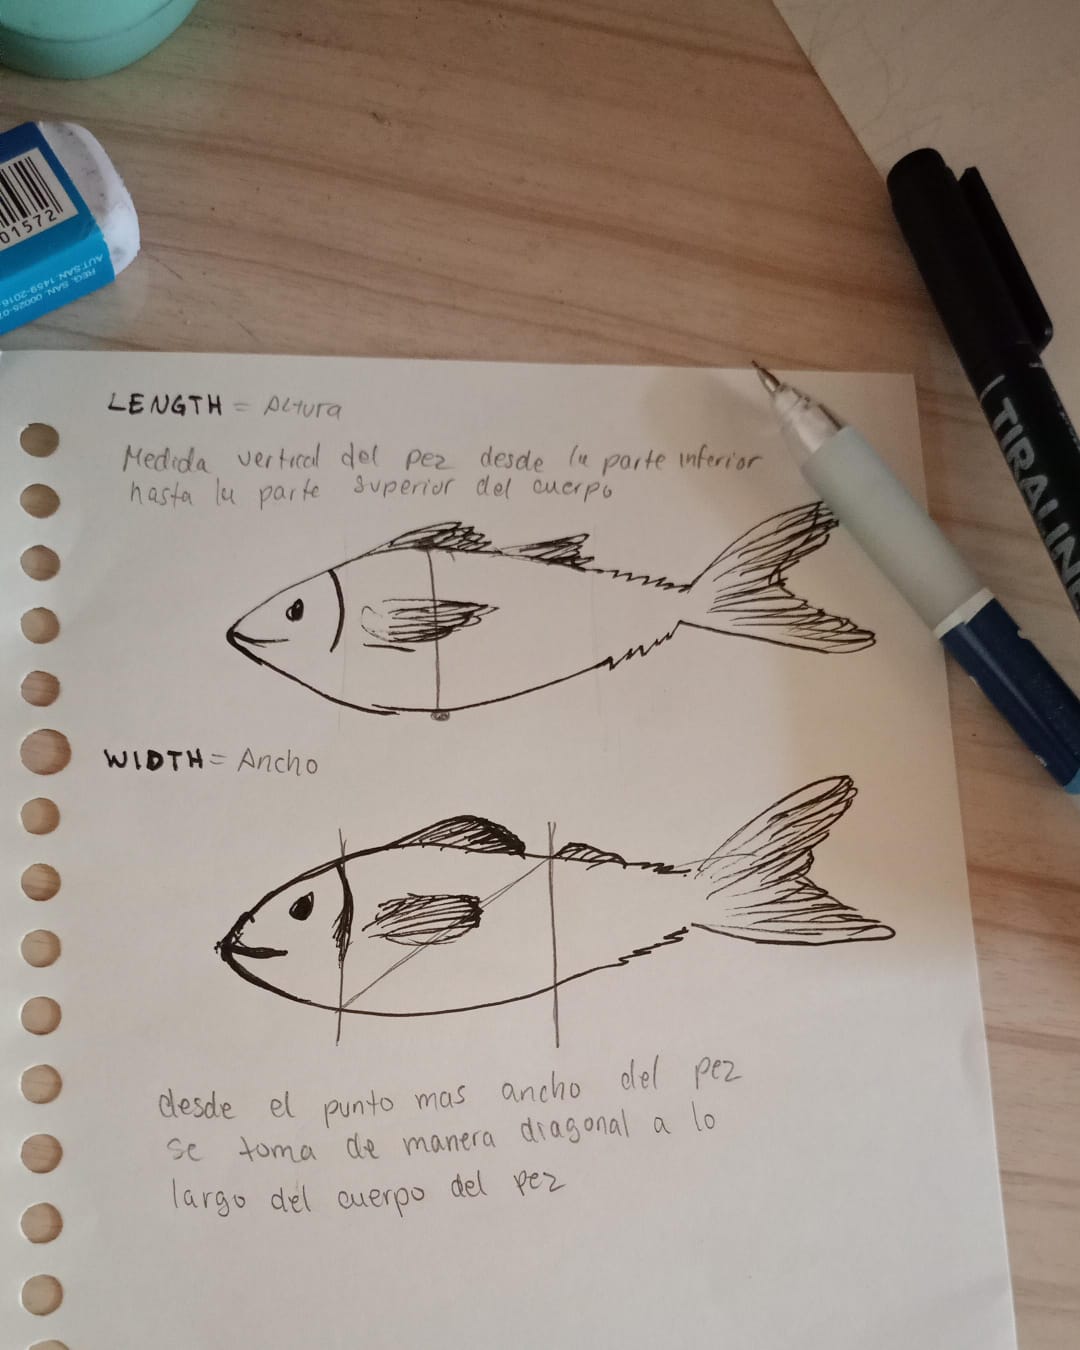 01572
REG. SAN. 00025-07
AUT.SAN 1459-2016
TIRALINE
LENGTH = Altura
Medida vertical del pez desde la parte inferior
hasta la parte superior del cuerpo
WIDTH = Ancho
desde el punto mas ancho del pez
se toma de manera diagonal a lo
largo del cuerpo del pez